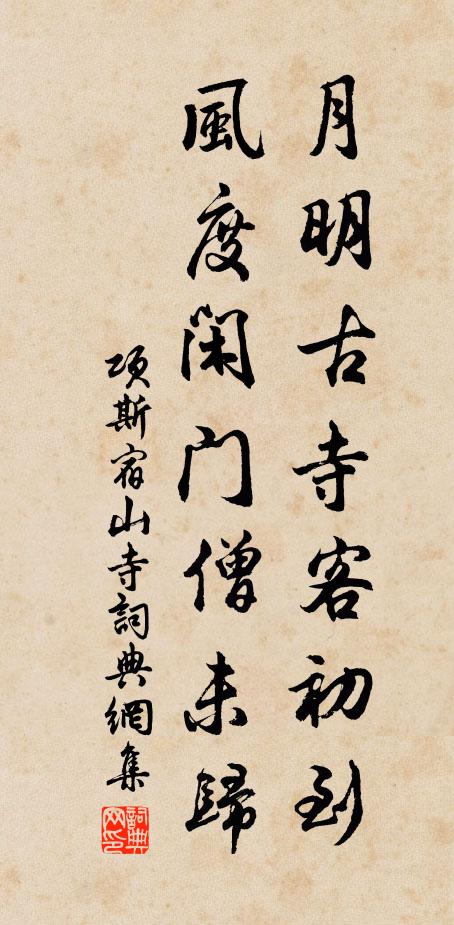 月明古寺客初到
風度閑門僧未歸
項斯宿山寺詞典網集
詞典
网印